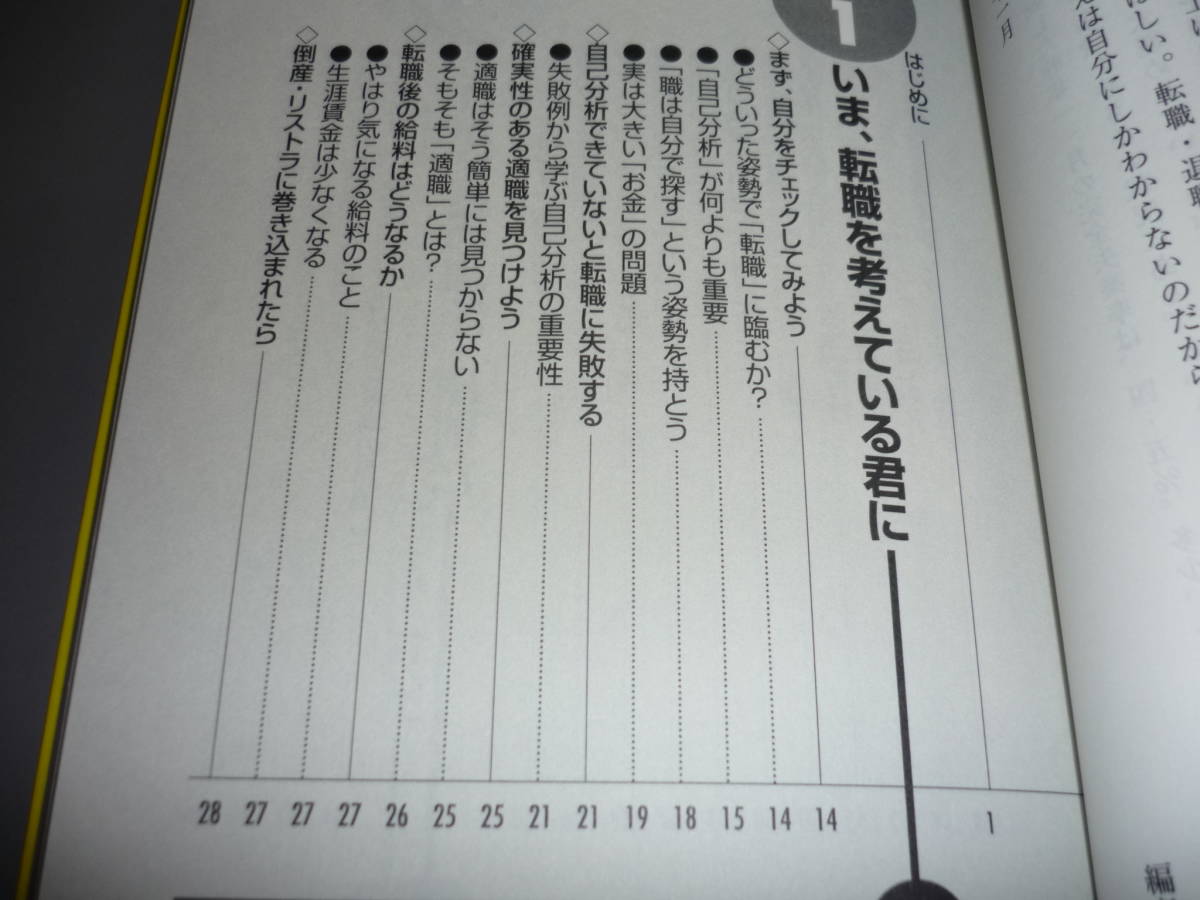 月
ほしい。転職・退職
は自分にしかわからないのだから
編
はじめに 1
1 いま、転職を考えている君に
◇まず、自分をチェックしてみよう 14
●どういった姿勢で「転職」に臨むか？ 14
●「自己分析」が何よりも重要 15
●「職は自分で探す」という姿勢を持とう 18
●実は大きい「お金」の問題 19
◇自己分析できていないと転職に失敗する 21
●失敗例から学ぶ自己分析の重要性 21
◇確実性のある適職を見つけよう 25
●適職はそう簡単には見つからない 25
●そもそも「適職」とは？ 26
◇転職後の給料はどうなるか 27
●やはり気になる給料のこと 27
●生涯賃金は少なくなる 27
◇倒産・リストラに巻き込まれたら 28